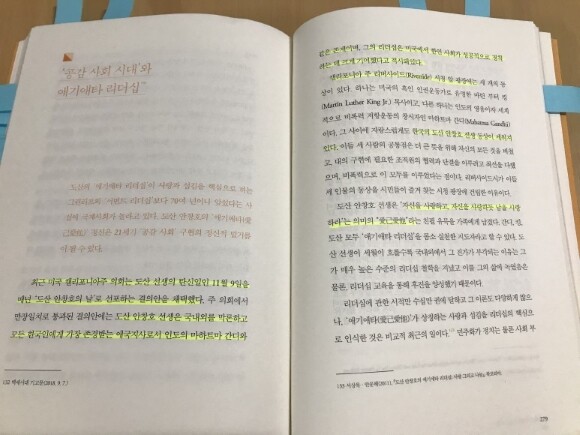 '공감 사회 시대'와
애기애타 리더십
도산의 '애기애타 리더십'이 사랑과 섬김을 핵심으로 하는
그린리프의 '서번트 리더십'보다 70여 년이나 앞섰다는 사
실에 국제사회가 놀라고 있다. 도산 안창호의 '애기애타(愛
己愛他)' 정신은 21세기 '공감 사회' 구현의 정신적 열기를
더할 수 있다.
최근 미국 캘리포니아주 의회는 도산 선생의 탄신일인 11월 9일을
매년 '도산 안창호의 날'로 선포하는 결의안을 채택했다. 주 의회에서
만장일치로 통과된 결의안에는 도산 안창호 선생은 국내외를 막론하고
모든 한국인에게 가장 존경받는 애국지사로서 인도의 마하트마 간디와
같은 존재이며, 그의 리더십은 미국에서 한인 사회가 성공적으로 정착
하는 데 크게 기여했다고 적시돼있다.
캘리포니아 주 리버사이드(Riverside) 시청 앞 광장에는 세 개의 동
상이 있다. 하나는 미국의 흑인 인권운동가로 유명한 마틴 루터 킹
(Martin Luther King Jr.) 목사이고, 다른 하나는 인도의 영웅이자 세계
적으로 비폭력 저항운동의 창시자인 마하트마 간디(Mahatma Gandhi)
이다. 그 사이에 자랑스럽게도 한국의 도산 안창호 선생 동상이 세워져
있다. 이들 세 사람의 공통점은 더 큰 뜻을 위해 자신의 모든 것을 바쳤
고, 대의 구현에 필요한 조직원의 협력과 단결을 이루려고 최선을 다했
으며, 비폭력으로 이 모두를 이루었다는 점이다. 리버사이드시가 이들
세 인물의 동상을 시민들이 즐겨 찾는 시청 광장에 건립한 이유이다.
도산 안창호 선생은 '자신을 사랑하고, 자신을 사랑하듯 남을 사랑
하라'는 의미의 '愛己愛他'라는 친필 유묵을 가족에게 남겼다. 간디, 킹,
도산 모두 '애기애타 리더십'을 몸소 실천한 지도자라고 할 수 있다. 도
산 선생이 세월이 흐를수록 국내외에서 그 진가가 부각되는 이유는 그
가 매우 높은 수준의 리더십 철학을 지녔고 이를 그의 삶에 녹였음은
물론, 리더십 교육을 통해 후진을 양성했기 때문이다.
리더십에 관한 시각만 수십만 권에 달하고 그 이론도 다양하게 많으
나, '애기애타(愛己愛他)'가 상생하는 사랑과 섬김을 리더십의 핵심으
로 인식한 것은 비교적 최근의 일이다.
279